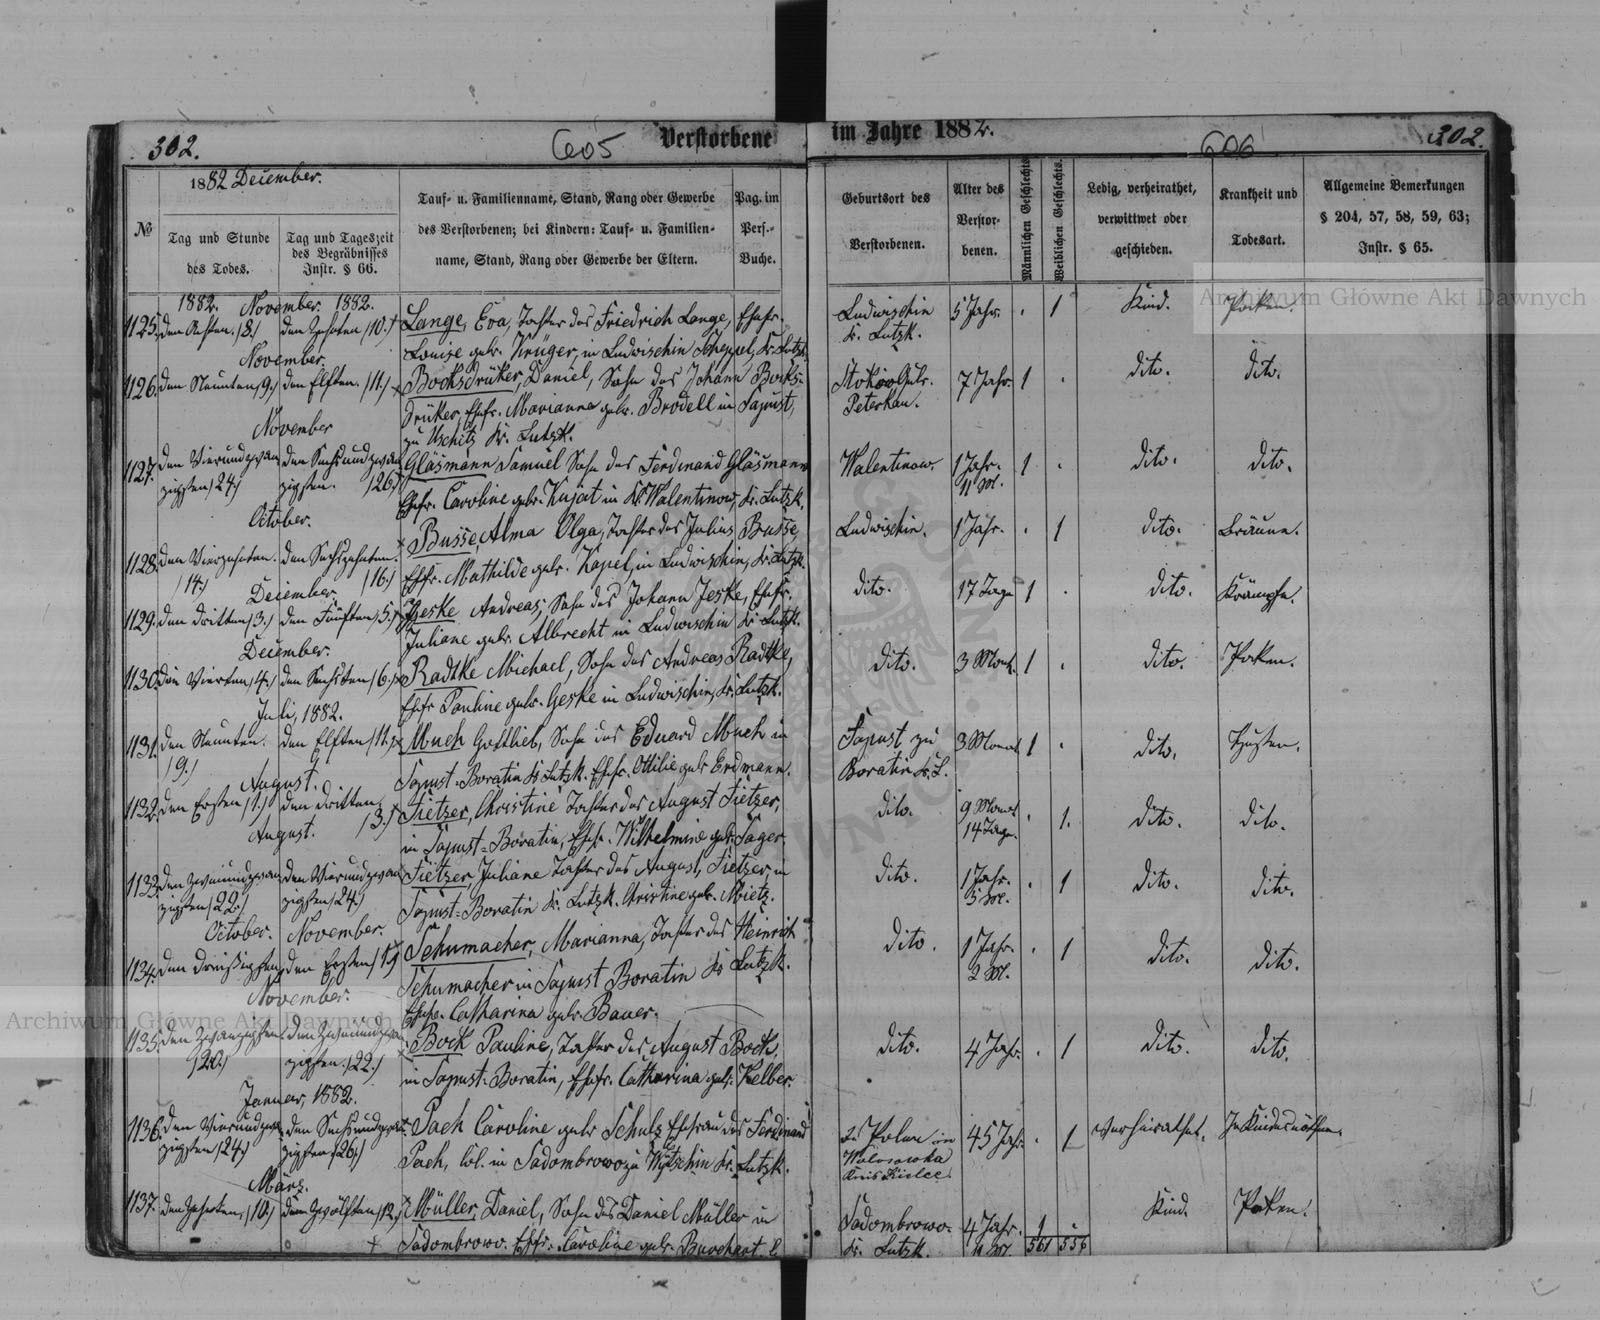 302.
605
Verstorbene
im Jahre 1882.
606
302.
1882 December.
№
Tag und Stunde
des Todes.
Tag und Tageszeit
des Begräbnisses
Instr. § 66.
Tauf- u. Familienname, Stand, Rang oder Gewerbe
des Verstorbenen; bei Kindern: Tauf- u. Familien-
name, Stand, Rang oder Gewerbe der Eltern.
Pag. im
Pers.-
Buche.
Geburtsort des
Verstorbenen.
Alter des
Verstor-
benen.
Männlichen Geschlechts.
Weiblichen Geschlechts.
Ledig, verheirathet,
verwittwet oder
geschieden.
Krankheit und
Todesart.
Allgemeine Bemerkungen
§ 204, 57, 58, 59, 63;
Instr. § 65.
1882. November. 1882.
1125. den Achten. /8./ den Zehnten /10./ Lange, Eva, Tochter des Friedrich Lange, Ehefr. Ludwischin 5 Jahr. 1 Kind. Pocken.
Louise geb. Krüger, in Ludwischin Kr. Lutzk. Kr. Lutzk.
November
1126. den Neunten /9./ den Elften. /11./ Bocksdrüker, Daniel, Sohn des Johann Bocks- 7 Jahr. 1 dito. dito.
drüker, Ehefr. Marianna geb. Brodell in Sapust, Peterkau.
zu Uschitz Kr. Lutzk.
November
1127. den Vierundzwan den Sechsundzwan Gläsmann Samuel Sohn des Ferdinand Gläsmann Walentinow. 1 Jahr. 1 dito. dito.
zigsten /24./ zigsten. /26./ Ehefr. Caroline geb. Kujat in Walentinow, Kr. Lutzk. 11 M.
October.
1128. den Vierzehnten. den Sechszehnten. Busse, Alma Olga, Tochter des Julius Busse, Ludwischin. 1 Jahr. 1 dito. Bräune.
/14./ /16./ Ehefr. Mathilde geb. Kapel, in Ludwischin, Kr. Lutzk.
December.
1129. den dritten /3./ den Fünften /5./ Jeske Andreas, Sohn des Johann Jeske, Ehefr. dito. 17 Tage 1 dito. Krämpfe.
Juliane geb. Albrecht in Ludwischin Kr. Lutzk.
December.
1130. den Vierten /4./ den Sechsten /6./ Radtke Michael, Sohn des Andreas Radtke, dito. 3 Monat. 1 dito. Pocken.
Ehefr Pauline geb. Geske in Ludwischin, Kr. Lutzk.
Juli, 1882.
1131. den Neunten. den Elften /11./ Much Gottlieb, Sohn des Eduard Much in Sapust zu 3 Monat 1 dito. Husten.
/9./ Sapust-Boratin Kr Lutzk. Ehefr. Ottilie geb Erdmann. Boratin Kr. L.
August.
1132. den Ersten /1./ den dritten /3./ Tietzer, Christine Tochter des August Tietzer, dito. 9 Monat 1. dito. dito.
in Sapust-Boratin, Ehefr. Wilhelmine geb. Sager. 14 Tage.
August.
1133. den Zweiundzwan den Vierundzwan Tietzer, Juliane Tochter des August Tietzer, in dito. 1 Jahr. 1 dito. dito.
zigsten /22./ zigsten /24./ Sapust-Boratin Kr. Lutzk. Christine geb. Mietz. 5 M.
October. November.
1134. den dreißigsten den Ersten /1./ Schumacher, Marianna, Tochter des Heinrich dito. 1 Jahr. 1 dito. dito.
Schumacher in Sapust Boratin Kr Lutzk. 2 M.
Ehefr. Catharina geb. Bauer.
November.
1135. den Zwanzigsten den Zweiundzwan Bock Pauline, Tochter des August Bock, dito. 4 Jahr. 1 dito. dito.
/20./ zigsten /22./ in Sapust-Boratin, Ehefr. Catharina geb. Kelber.
Januar, 1882.
1136. den Vierundzwan den Sechsundzwan Pach Caroline geb Schulz Ehefrau des Ferdinand in Polen in 45 Jahr. 1 Verheirathet. In Kindesnöthen.
zigsten /24./ zigsten /26./ Pach, Col. in Sadombrowo Kr. Lutzk. Kielce
März.
1137. den Zehnten, /10./ den Zwölften /12./ Müller, Daniel, Sohn des Daniel Müller in Sadombrowo. 4 Jahr. 1 Kind. Pocken.
Sadombrowo. Ehefr. Caroline geb. Burchart Kr. Lutzk. 561 556
Archiwum Główne Akt Dawnych
Archiwum Główne Akt Dawnych